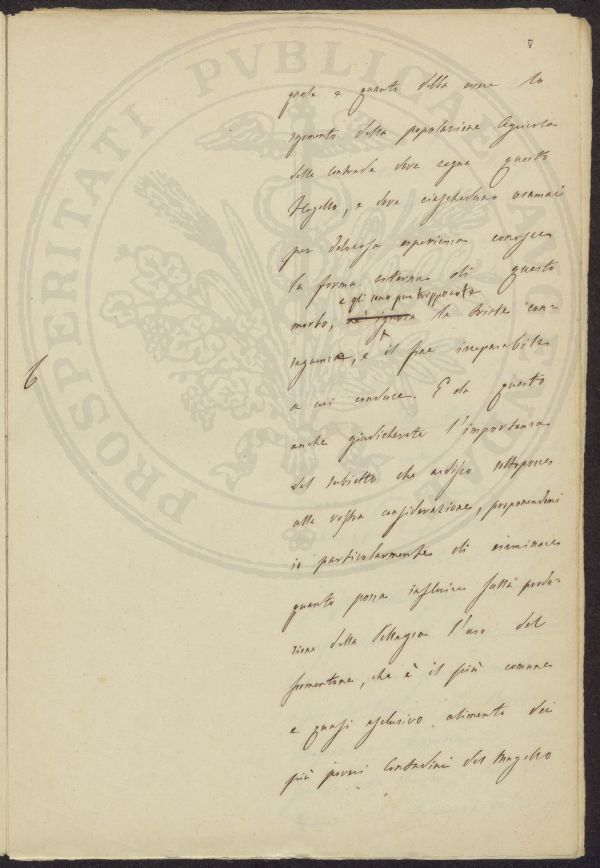 quale e quanto debba essere lo
sgomento della popolazione Agricola
delle contrade dove regna questo
flagello, e dove ciascheduno oramai
per dolorosa esperienza conosce
la forma esterna di questo
e gli sono pur troppo note
morbo, nè ignora le triste con=
seguenze, e il fine irreparabile
a cui conduce. E da questo
anche giudicherete l'importanza
del subietto che ardisco sottoporre
alla vostra considerazione, proponendomi
io particolarmente di esaminare
quanto possa influire sulla produ=
zione della Pellagra l'uso del
formentone, che è il più comune
e quasi esclusivo alimento dei
più poveri Contadini del Mugello
PROSPERITATI PVBLICAE